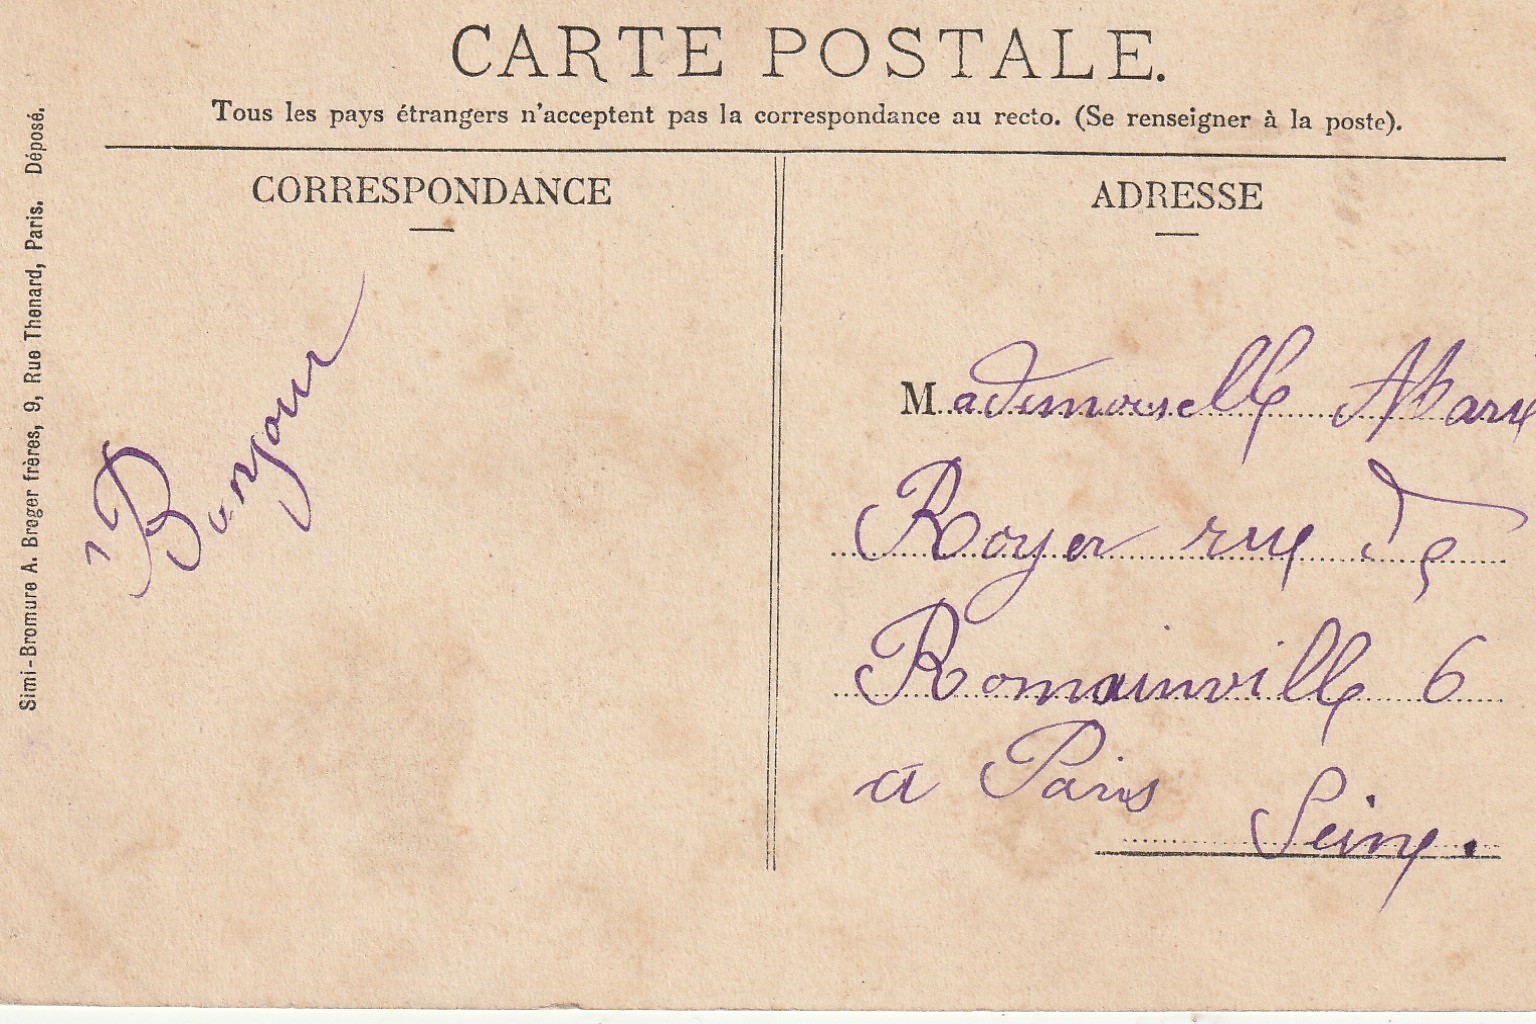 CARTE POSTALE.
Tous les pays étrangers n'acceptent pas la correspondance au recto. (Se renseigner à la poste).
CORRESPONDANCE
ADRESSE
Simi-Bromure A. Breger frères, 9, Rue Thenard, Paris. Déposé.
Bonjour
Mademoiselle Marie
Royer rue de
Romainville 6
à Paris
Seine.